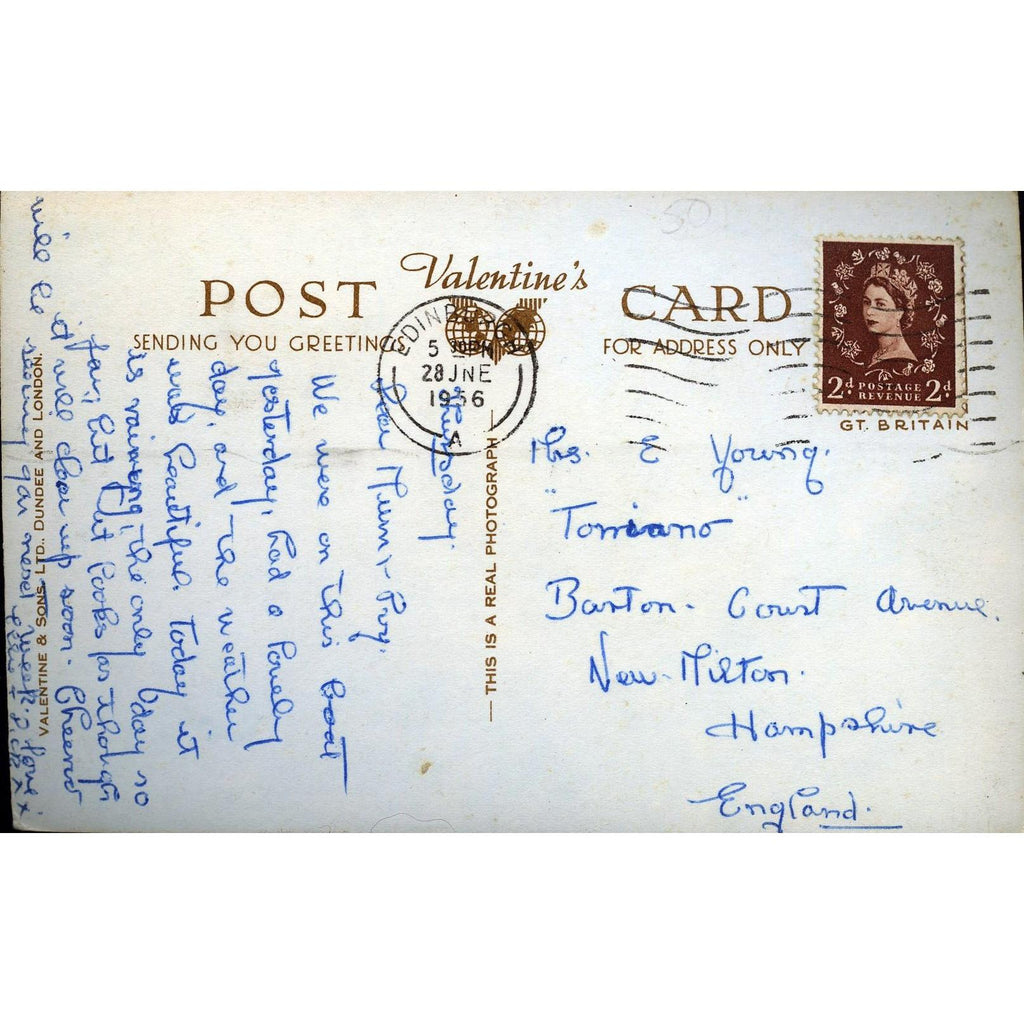 50
POST Valentine's CARD
SENDING YOU GREETINGS FOR ADDRESS ONLY
EDINBURGH
5 PM
28 JNE
1956
A
2d POSTAGE REVENUE 2d
GT. BRITAIN
Thursday.
Dear Mum & Roy.
We were on this boat
yesterday, had a lovely
day, and the weather
was beautiful. Today it
is raining, the only day so
far, but it looks as though
it will clear up soon. Cheerio
will be seeing you next week
love
THIS IS A REAL PHOTOGRAPH
VALENTINE & SONS. LTD., DUNDEE AND LONDON.
Mrs. E Young.
"Tomiano"
Barton. Court Avenue.
New. Milton.
Hampshire
England.